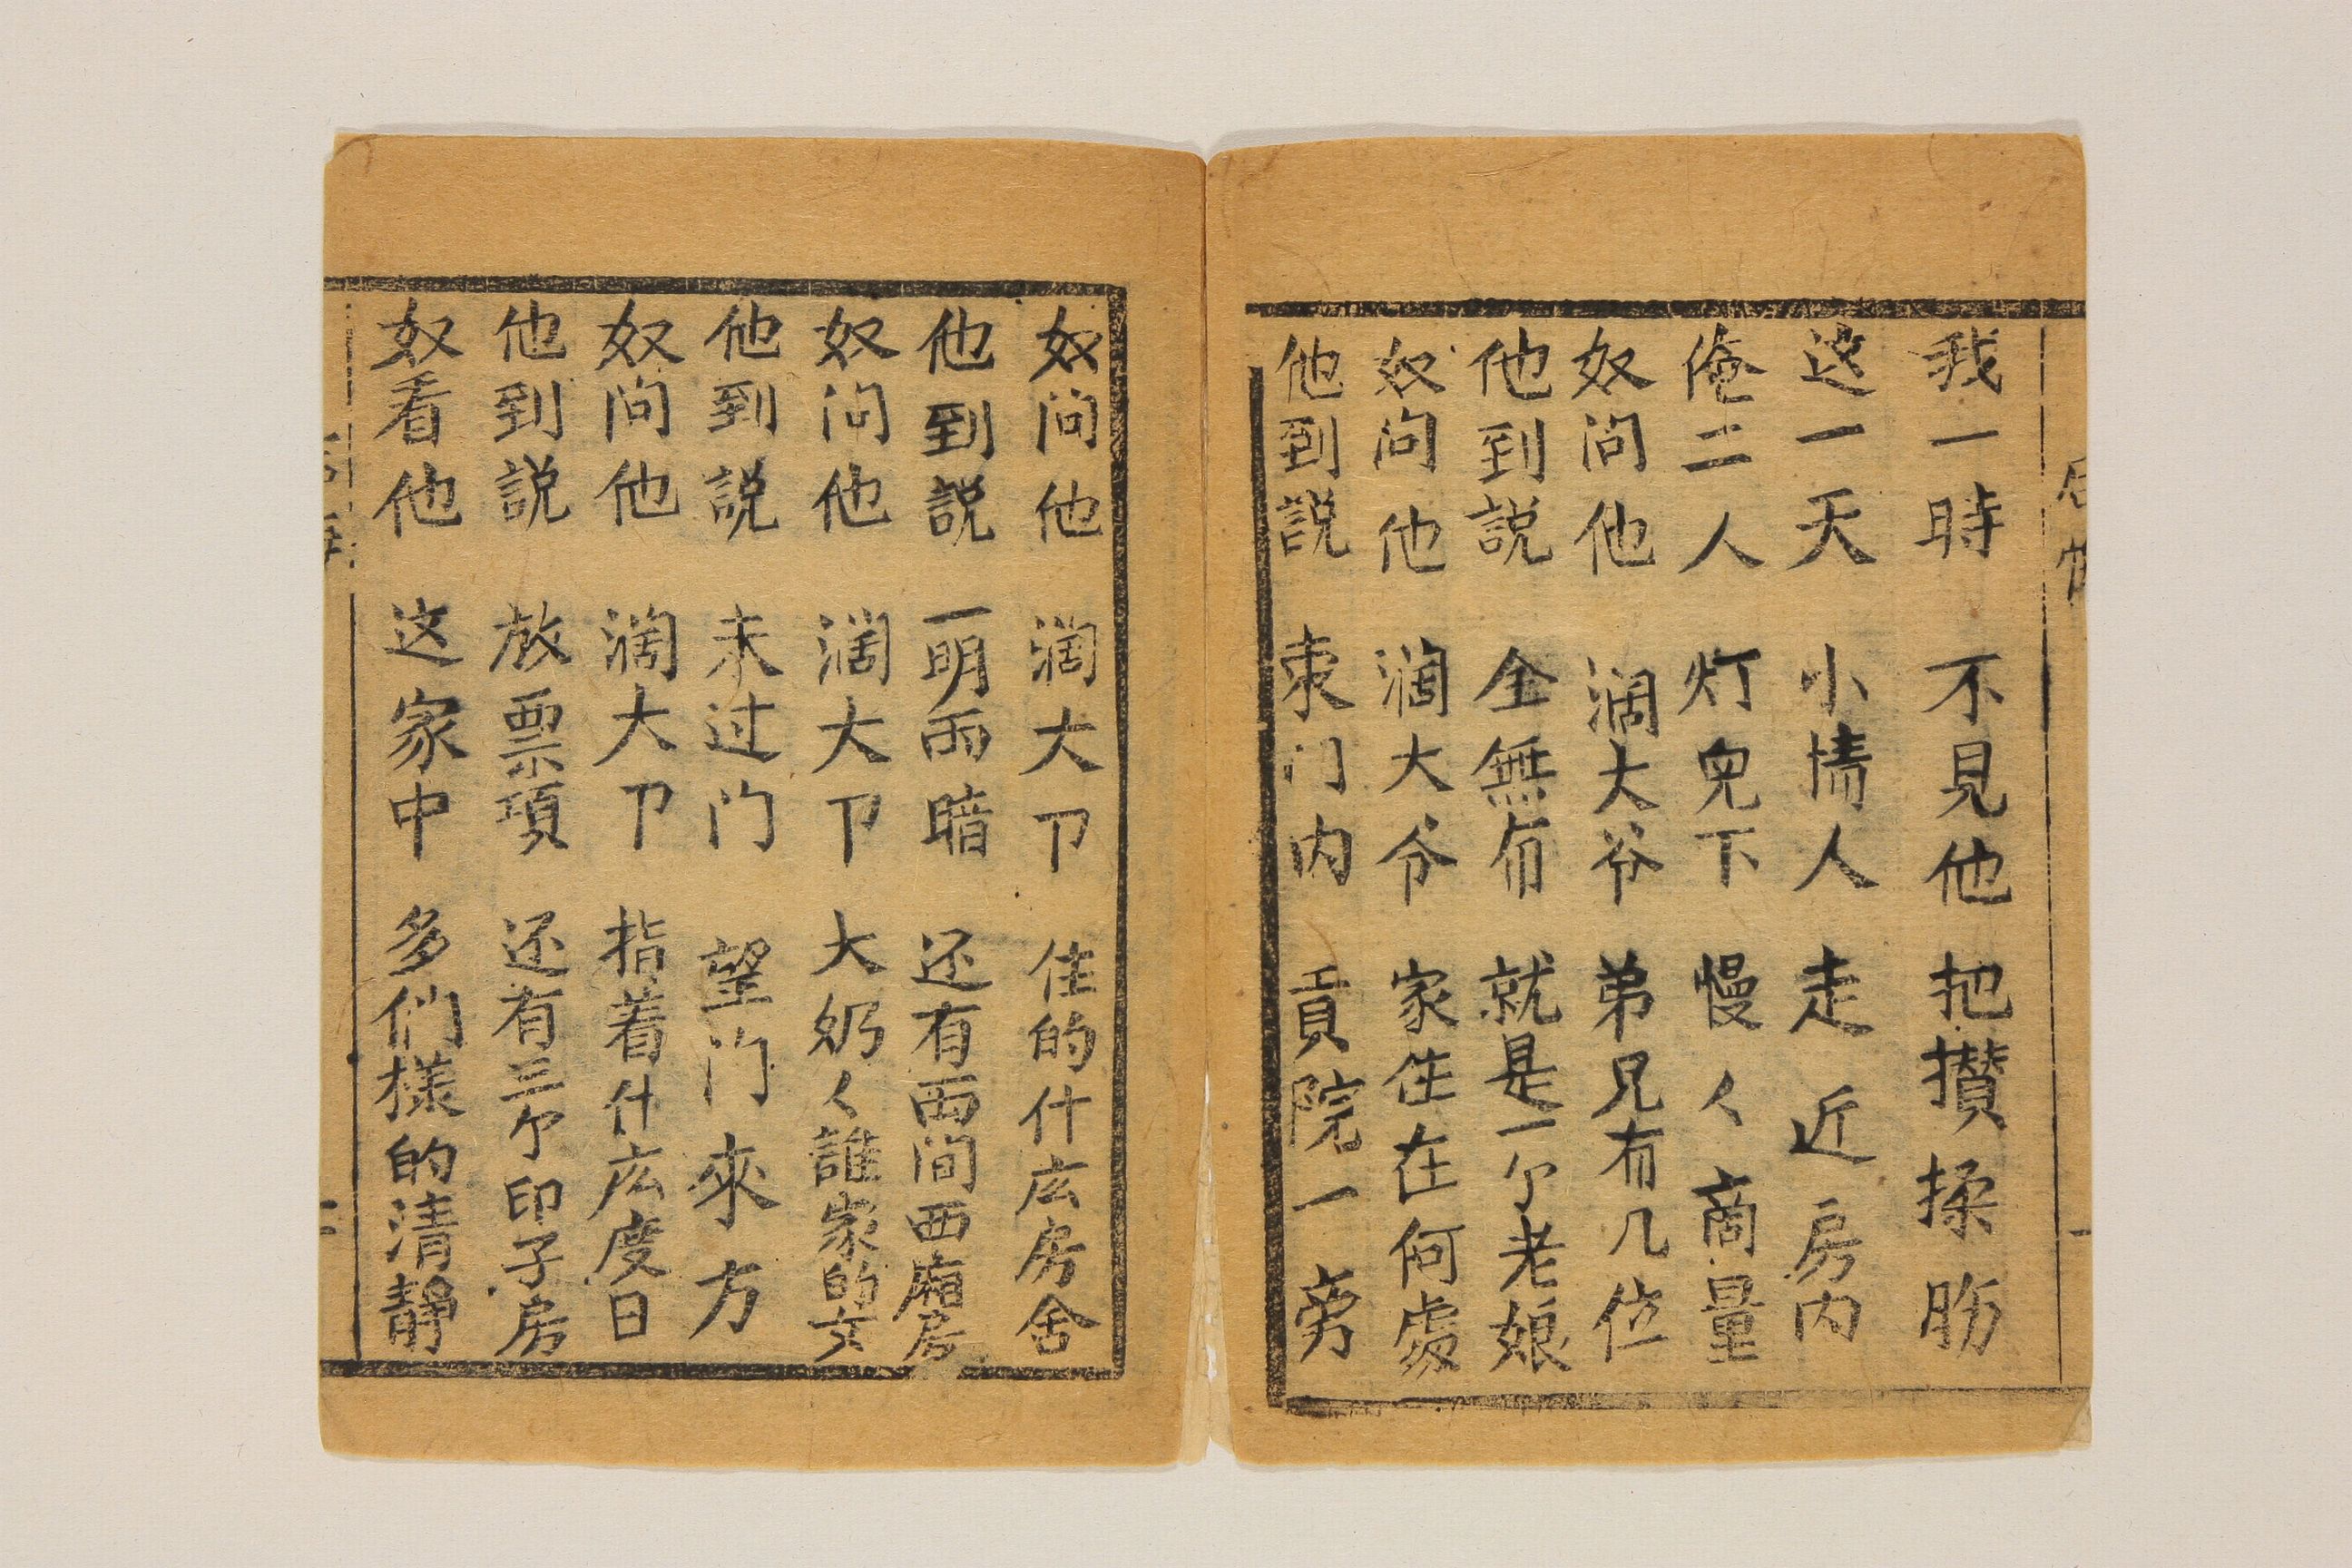 我一時 不見他 把攅揉肠
这一天 小情人 走近房内
俺二人 灯兒下 慢〱商量
奴问他 濶大爷 弟兄有几位
他到説 全無有 就是一亇老娘
奴问他 濶大爷 家住在何處
他到説 東门内 貢院一旁
奴问他 濶大卩 住的什広房舍
他到説 一明両暗 还有両间西廂房
奴问他 濶大卩 大奶〱誰家的女
他到説 未过门 望门來方
奴问他 濶大卩 指着什広度日
他到説 放票項 还有三亇印子房
奴看他 这家中 多们様的清靜